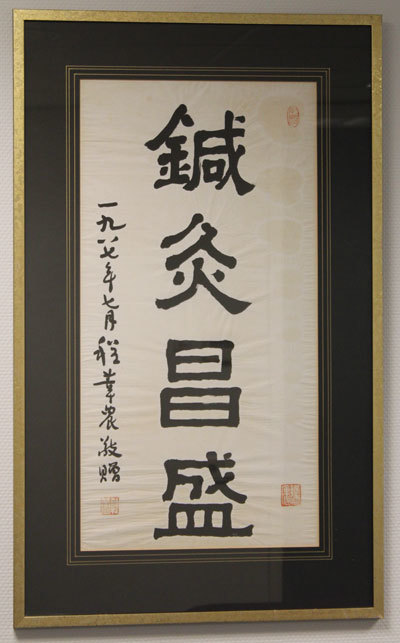 鍼灸昌盛
一九八七年七月程莘農敬贈